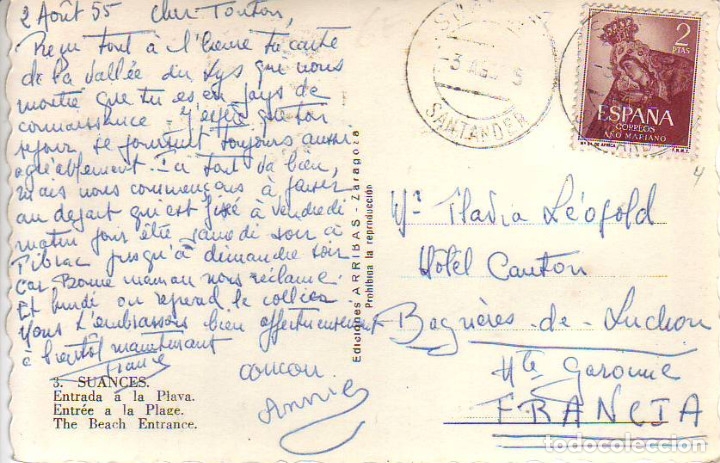 2 Août 55 Cher Tonton,
Reçu tout à l'heure ta carte
de la vallée du Lys qui nous
montre que tu es en pays de
connaissance. J'espère que ton
séjour se poursuit toujours aussi
agréablement. Ici tout va bien,
mais nous commençons à penser
au départ qui est fixé à vendredi
matin pour être samedi soir à
Pibrac jusqu'à dimanche soir
car Bonne maman nous réclame.
Et lundi on reprend le collier.
Nous t'embrassons bien affectueusement
à bientôt maintenant
coucou
Annie
3. SUANCES.
Entrada a la Playa.
Entrée a la Plage.
The Beach Entrance.
Ediciones ARRIBAS - Zaragoza
Prohibida la reproducción
SANTANDER
2
PTAS
ESPAÑA
CORREOS
AÑO MARIANO
Mr Léopold
Hôtel Canton
Bagnères-de-Luchon
Hte Garonne
FRANCIA
todocoleccion